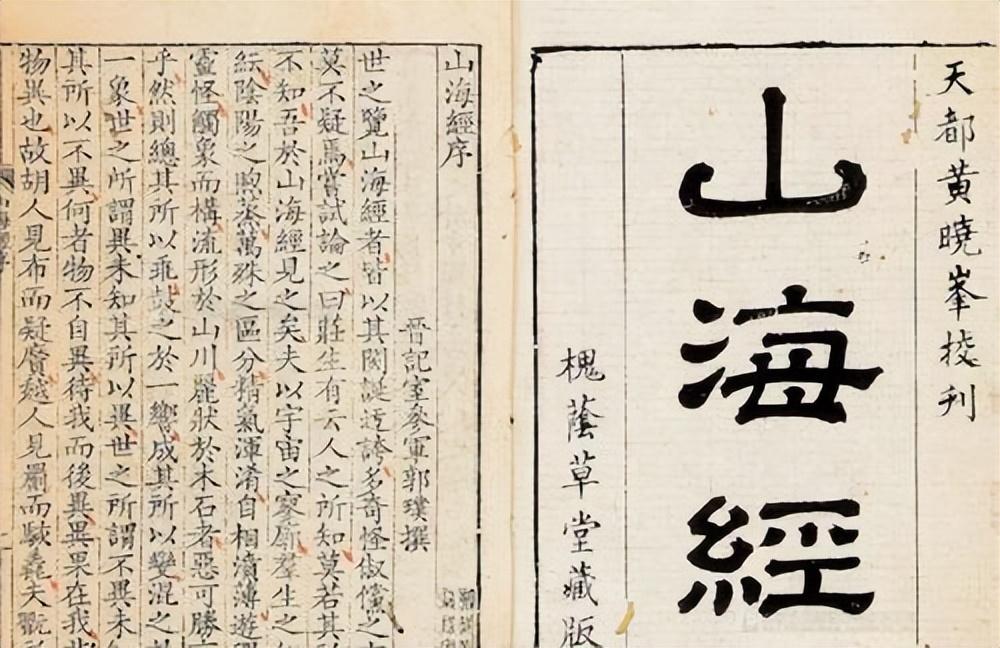 天都黄曉峯挍刊
山海經
槐蔭草堂藏版
山海經序
晉記室參軍郭璞撰
世之覽山海經者皆以其閎誕迂誇多奇怪俶儻之
莫不疑焉嘗試論之曰莊生有云人之所知莫若其
不知吾於山海經見之矣夫以宇宙之寥廓羣生之
紜陰陽之煦蒸萬殊之區分精氣渾淆自相濆薄遊
靈怪觸象而構流形於山川麗狀於木石者惡可勝
乎然則總其所以乖鼓之於一響成其所以變混之
一象世之所謂異未知其所以異世之所謂不異未
其所以不異何者物不自異待我而後異異果在我
物異也故胡人見布而疑黂越人見罽而駭毳夫翫